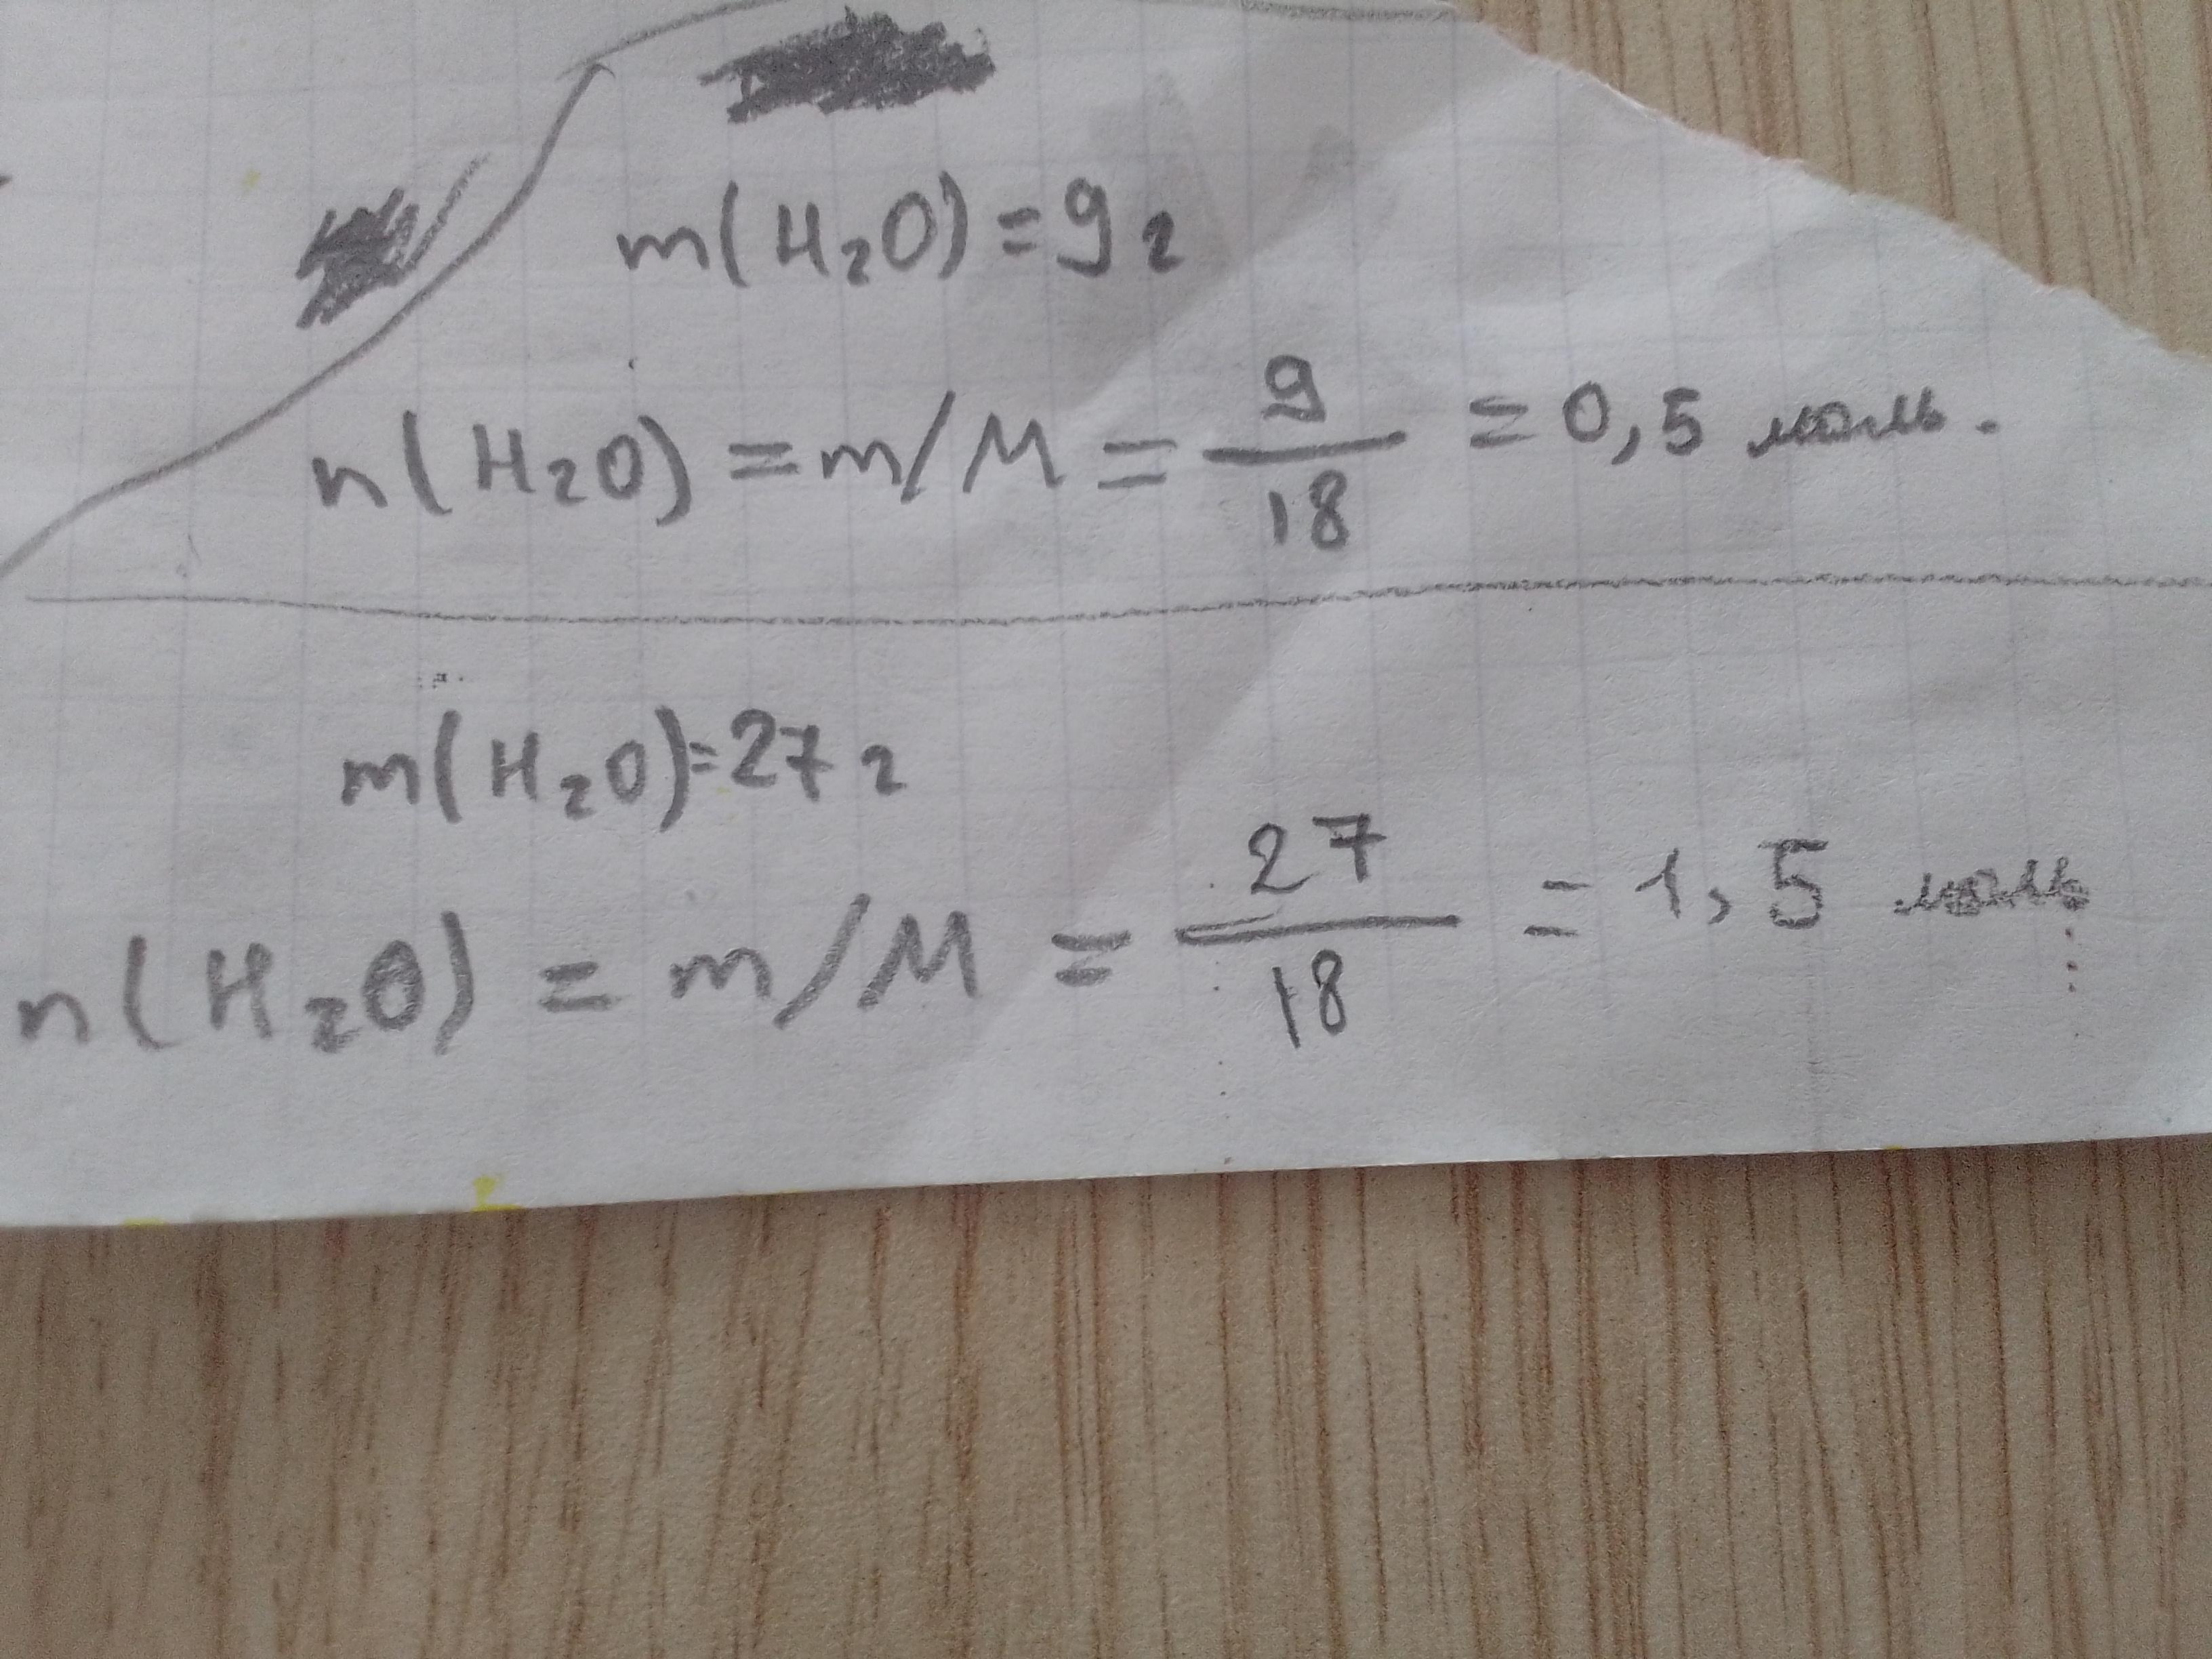 m(H₂O) = 9 г
n(H₂O) = m/M = 9/18 = 0,5 моль.
m(H₂O) = 27 г
n(H₂O) = m/M = 27/18 = 1,5 моль